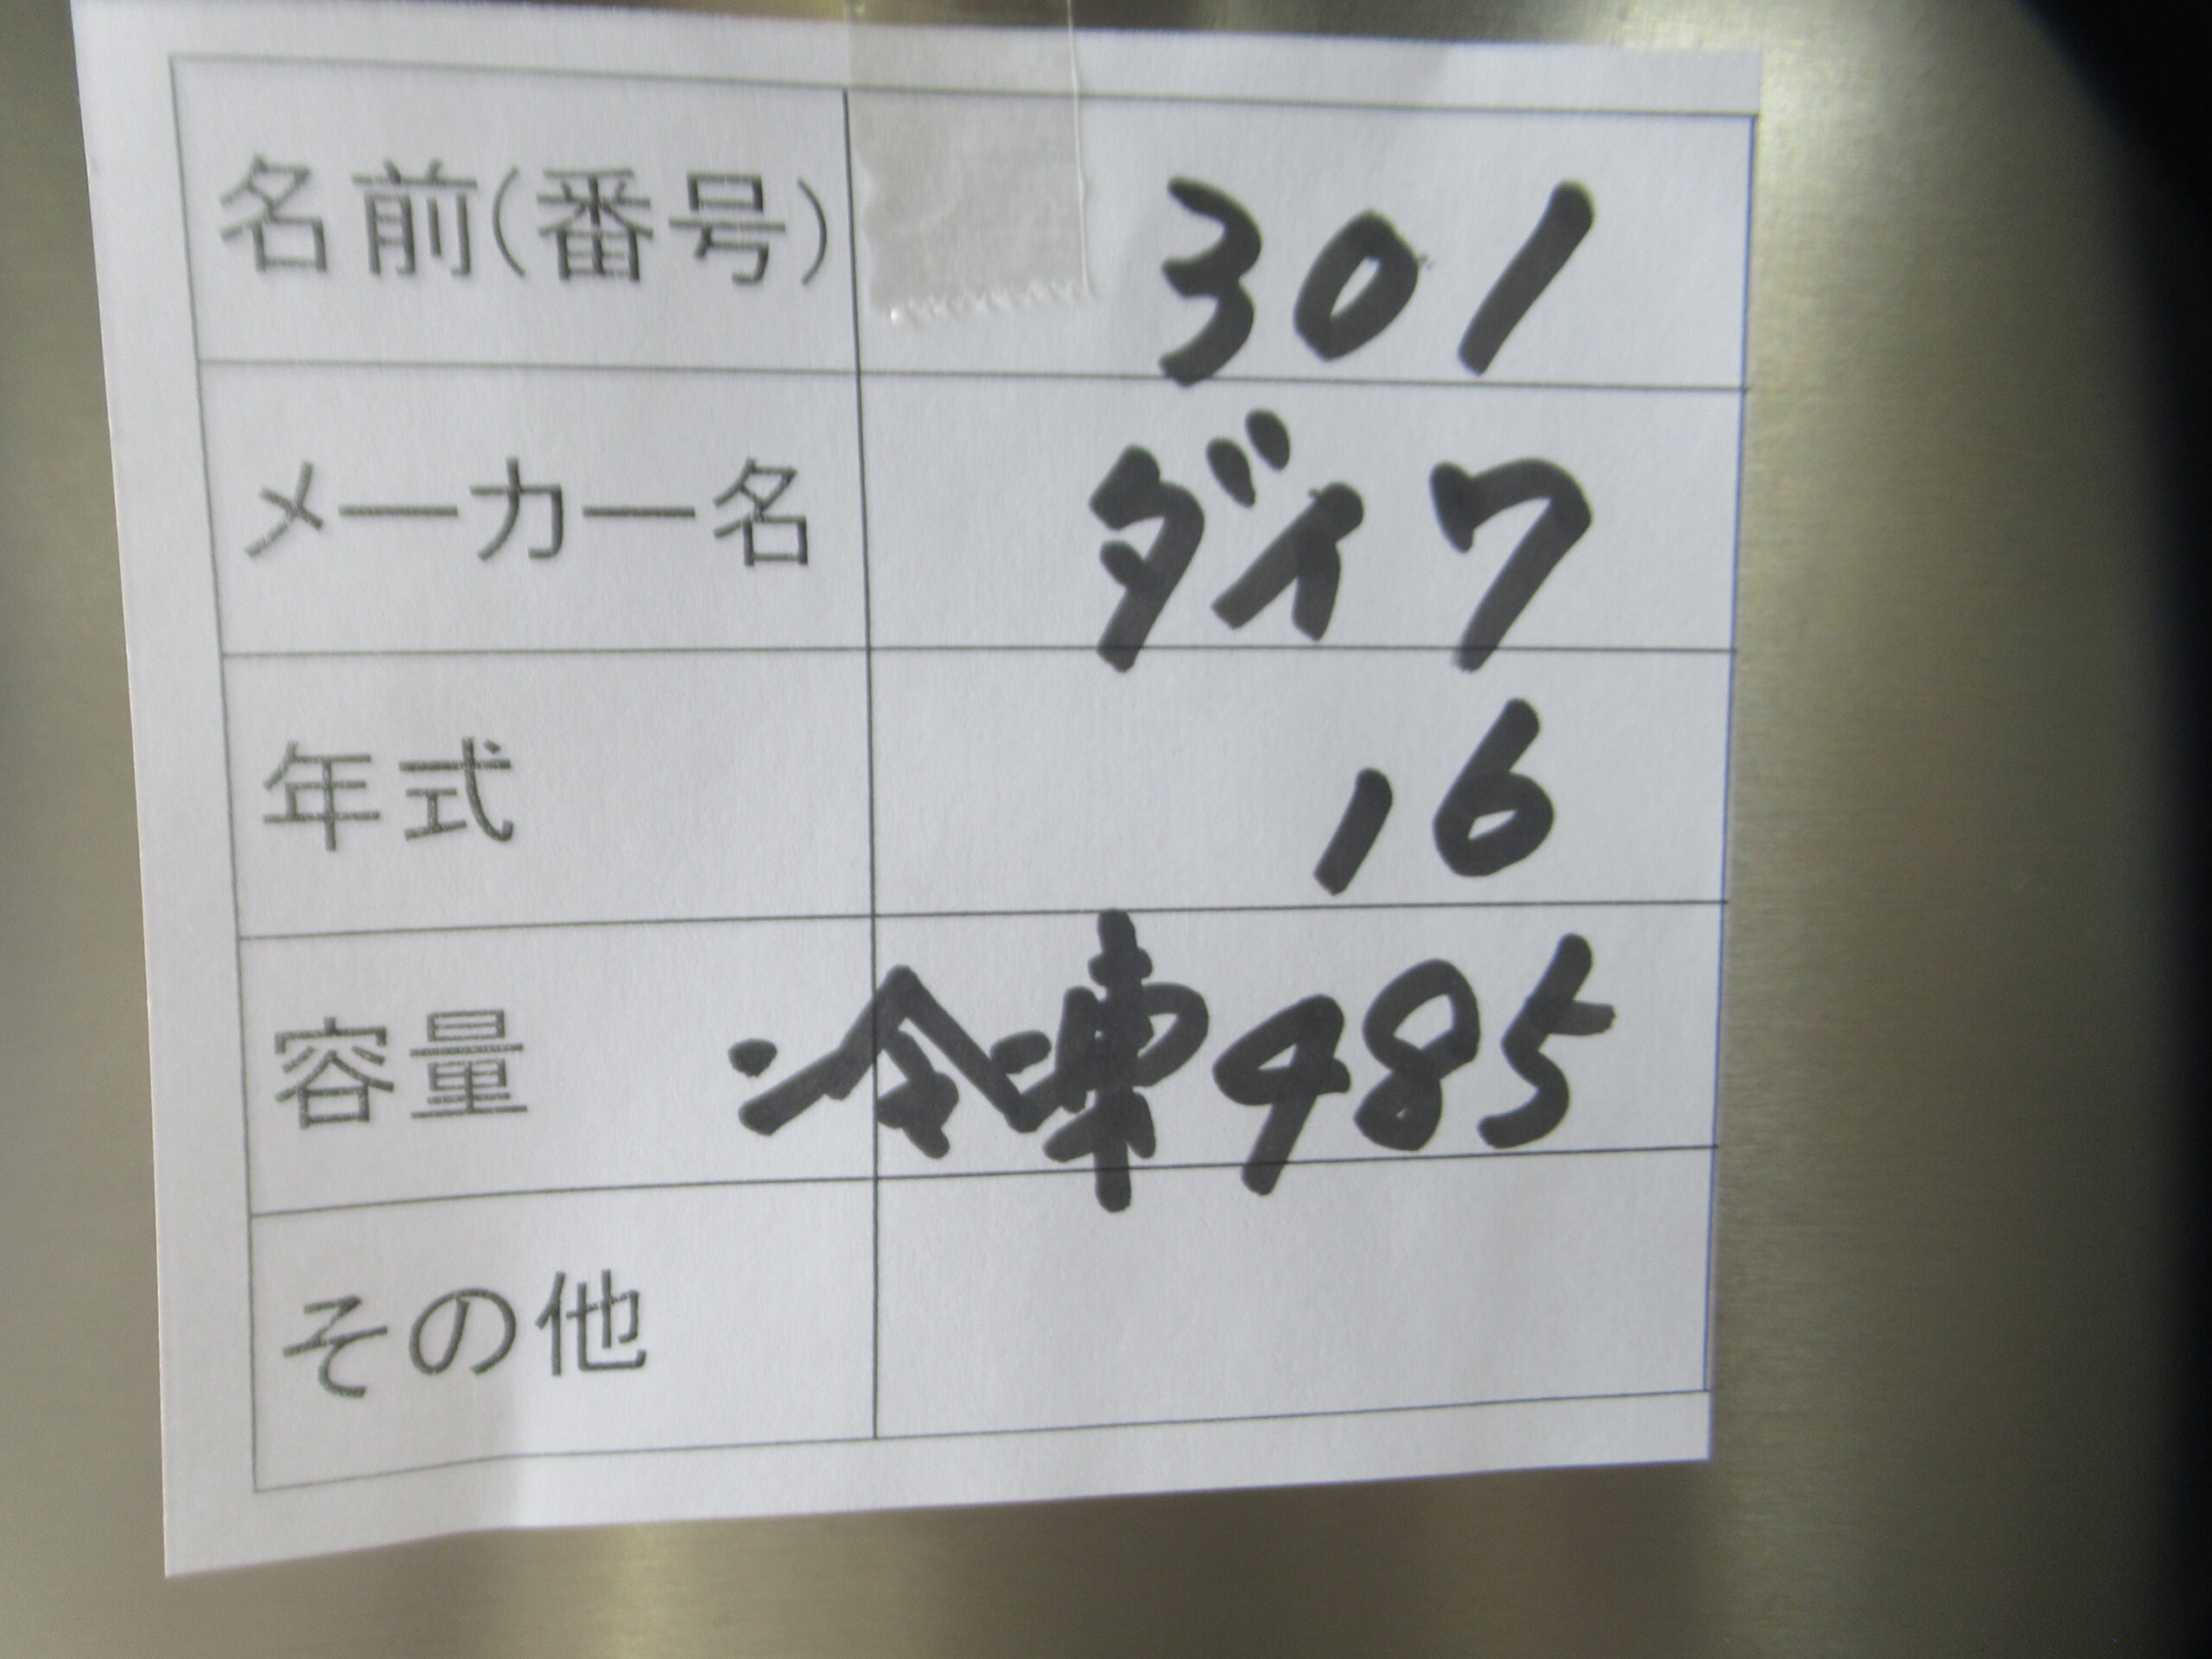 名前(番号) 301
メーカー名 ダイワ
年式 16
容量 冷凍485
その他